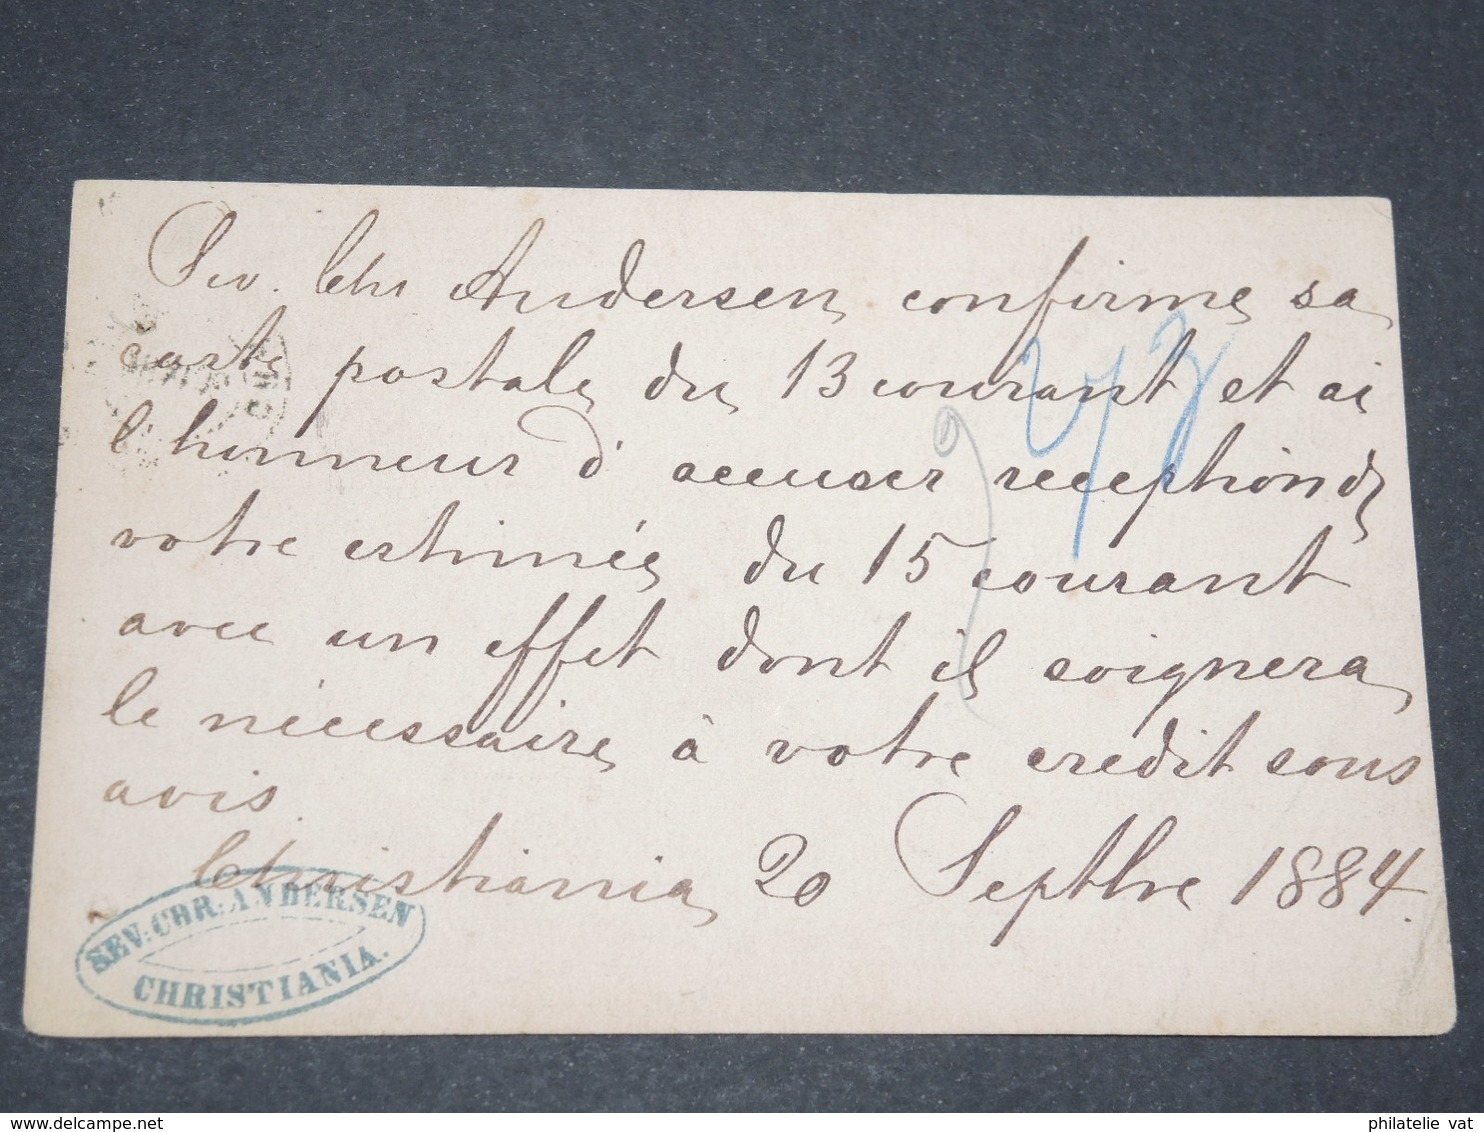 Sev. Chr Andersen confirme sa
carte postale du 13 courant et ai
l'honneur d'accuser reception de
votre estimée du 15 courant
avec un effet dont il soignera
le nécessaire à votre credit sous
avis.
Christiania 20 Septbre 1884.
SEV: CHR: ANDERSEN
CHRISTIANIA.
philatelie vat